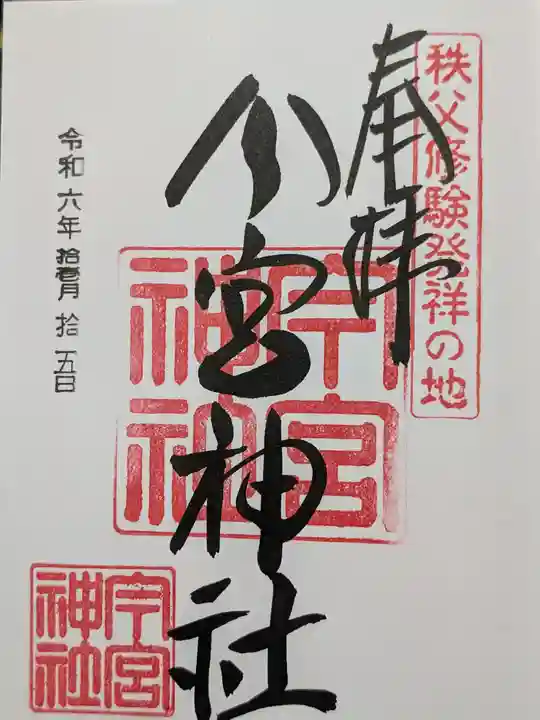 秩父修験発祥の地
奉拝
今宮神社
今宮
神社
令和六年拾壹月拾五日
今宮
神社